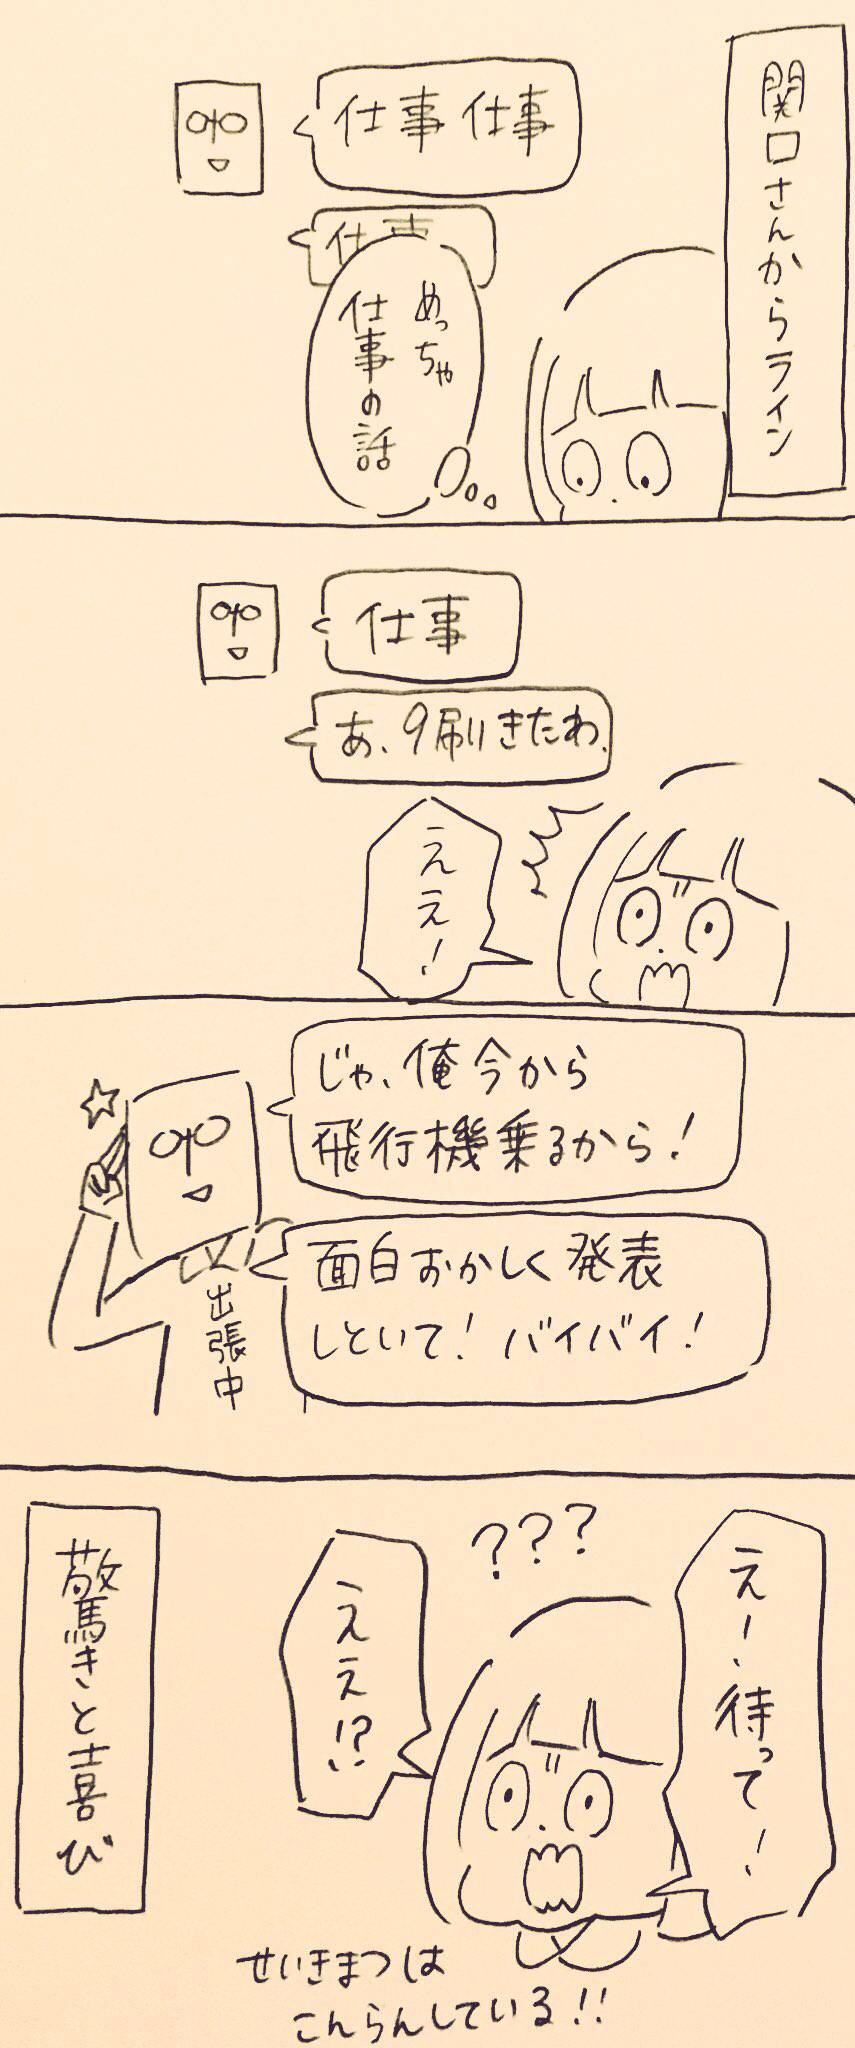 関口さんからライン
仕事 仕事
仕事
めっちゃ
仕事の話
仕事
あ、9刷りきたわ、
ええ!
じゃ、俺今から
飛行機乗るから!
面白おかしく発表
しといて! バイバイ!
出張中
えー、待って!
???
ええ!?
驚きと喜び
せいきまつは
こんらんしている!!